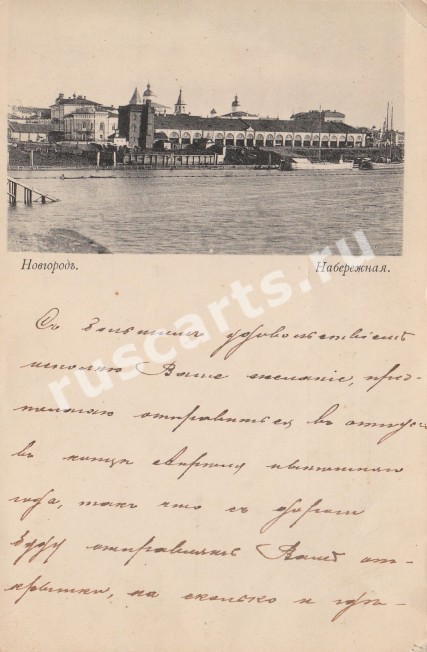 Новгородъ.
Набережная.
ruscarts.ru
Съ большимъ удовольствіемъ
исполню Ваше желаніе, пред-
полагаю отправиться въ отпускъ
въ конце нынешняго
года, такъ что съ дороги
буду отправлять Вамъ от-
крытки, на сколько и гдѣ-